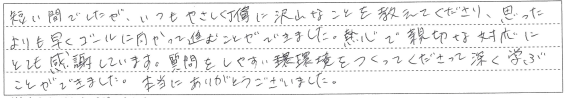 短い間でしたが、いつもやさしく丁寧に沢山なことを教えてくださり、思った
よりも早くゴールに向かって進むことができました。熱心で親切な対応に
とても感謝しています。質問をしやすい環環境をつくってくださって深く学ぶ
ことができました。本当にありがとうございました。